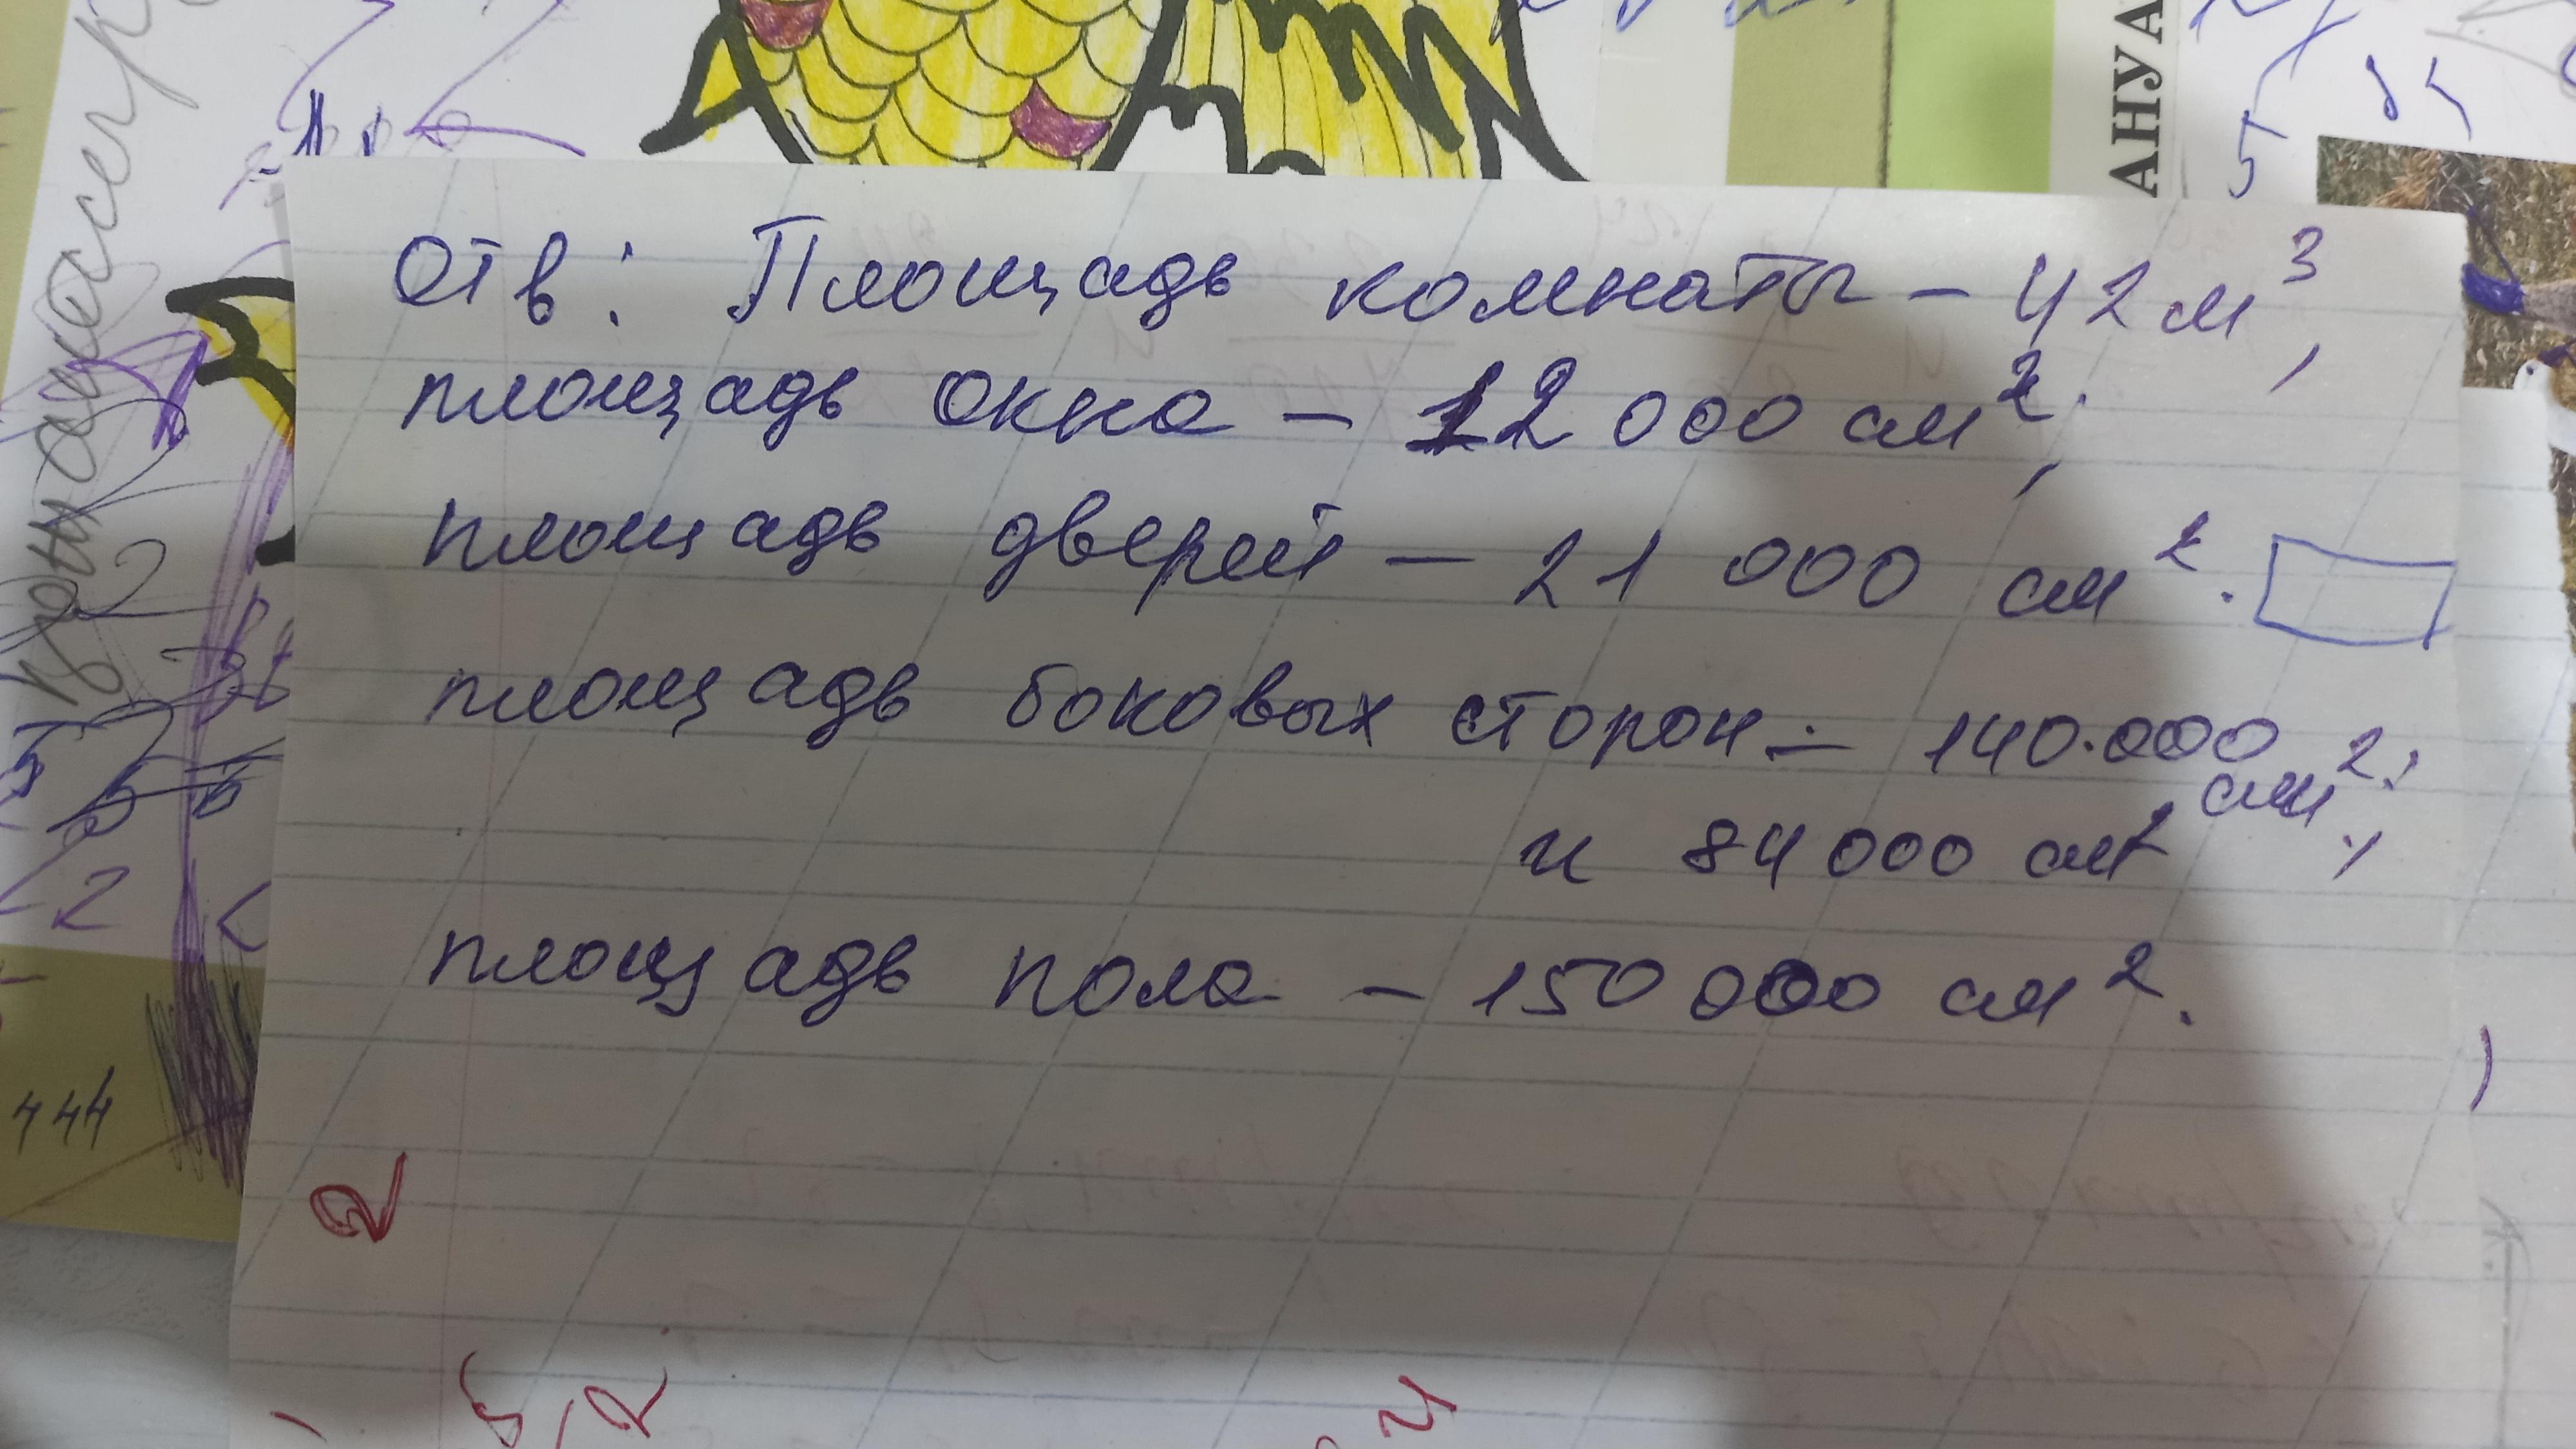 АНУА
5
Отв: Площадь комнаты – 42 м³,
площадь окна – 12 000 см²,
площадь дверей – 21 000 см².
площадь боковых сторон – 140.000 см²;
и 84 000 см²
площадь пола – 150 000 см².
444
2